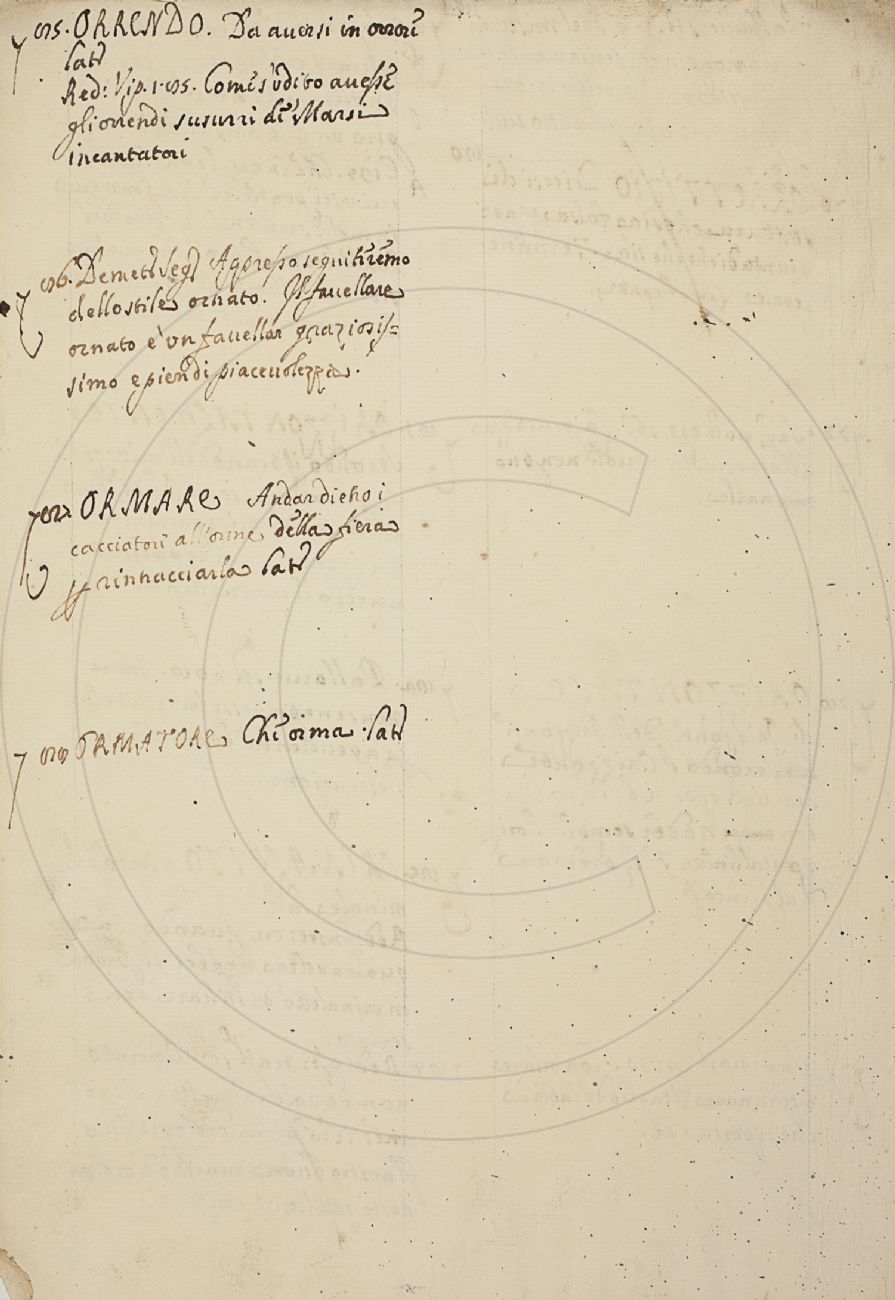 ORRENDO. Da auersi in orrore
Lat
Red: Vip. 1. Come s'udito auesse
gli orrendi susurri de' Marsi
incantatori
Demet: Segn Appresso seguiteremo
dello stile ornato. Il fauellare
ornato è un fauellar graziosis=
simo e pien di piaceuolezza.
ORMARE Andar dietro i
cacciatori all'orme della fiera
p rintracciarla Lat
ORMATORE Che orma. Lat